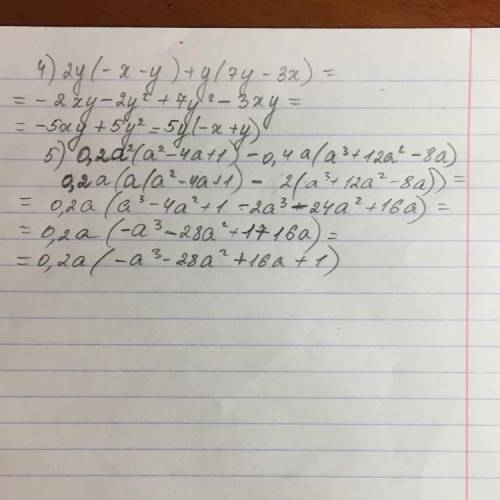 4) 2y(-x-y)+y(7y-3x)=
=-2xy-2y²+7y²-3xy=
=-5xy+5y²=5y(-x+y)
5) 0,2a²(a²-4a+1)-0,4a(a³+12a²-8a)
0,2a(a(a²-4a+1)-2(a³+12a²-8a))=
=0,2a(a³-4a²+1-2a³-24a²+16a)=
=0,2a(-a³-28a²+1+16a)=
=0,2a(-a³-28a²+16a+1)